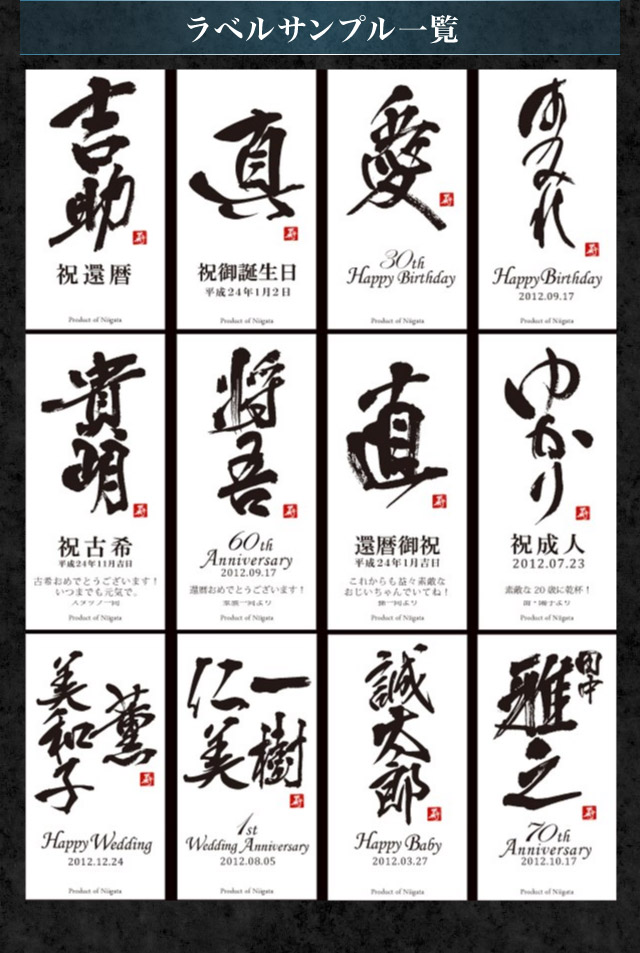 ラベルサンプル一覧
吉助
祝還暦
Product of Niigata
真
祝御誕生日
平成24年1月2日
Product of Niigata
愛
30th
Happy Birthday
Product of Niigata
すみれ
Happy Birthday
2012.09.17
Product of Niigata
貴明
祝古希
平成24年11月吉日
古希おめでとうございます!
いつまでも元気で。
スタッフ一同
将吾
60th
Anniversary
2012.09.17
還暦おめでとうございます!
家族一同より
直
還暦御祝
平成24年1月吉日
これからも益々素敵な
おじいちゃんでいてね!
孫一同より
ゆかり
祝成人
2012.07.23
素敵な20歳に乾杯!
薫
美和子
Happy Wedding
2012.12.24
Product of Niigata
一樹
仁美
1st
Wedding Anniversary
2012.08.05
Product of Niigata
誠太郎
Happy Baby
2012.03.27
Product of Niigata
田中
雅之
70th
Anniversary
2012.10.17
Product of Niigata